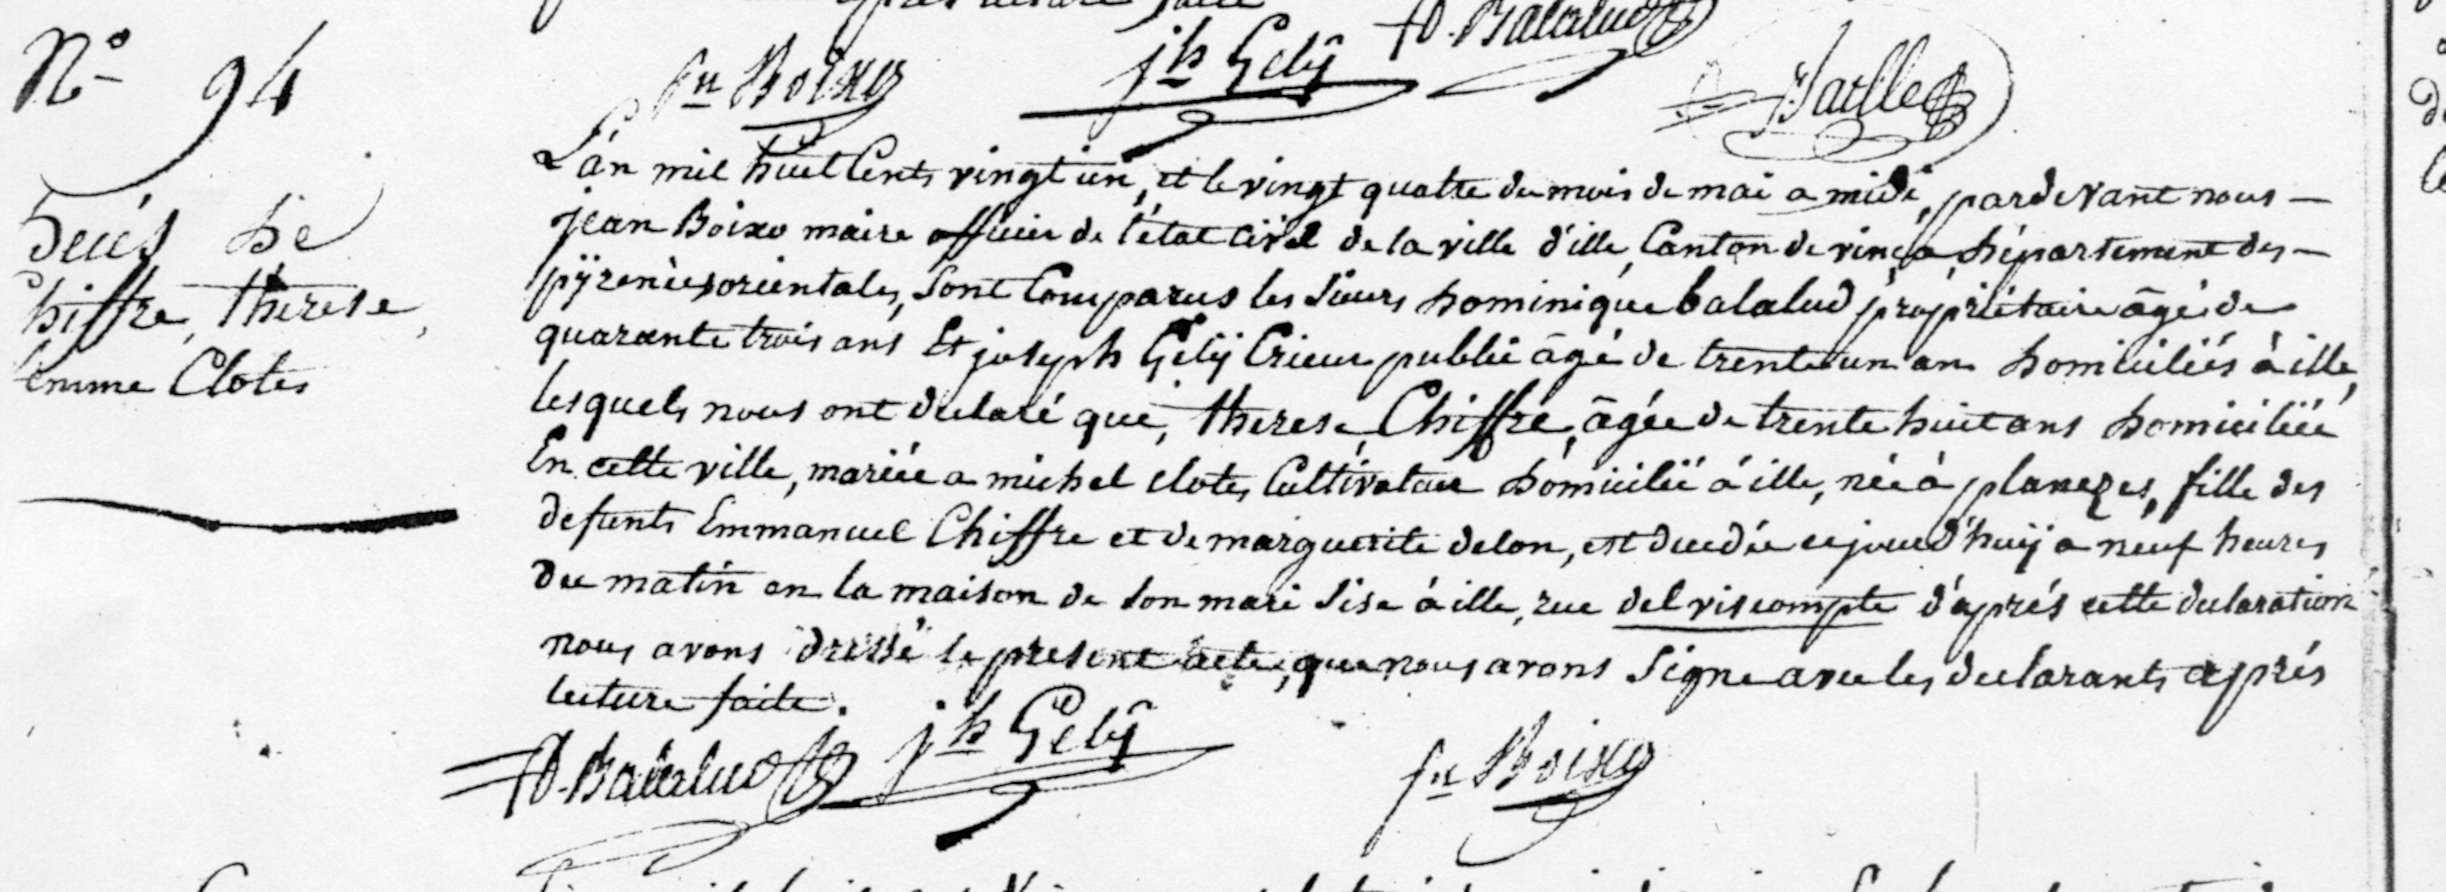 après lecture faite
D. Balalud
jn Boixo
jh Gelÿ
N.o 94
L'an mil huit Cents vingt un, et le vingt quatre du mois de mai a midi, pardevant nous —
jean Boixo maire officier de l'état civil de la ville d'ille, Canton de vinça, département des —
pÿrenèes orientales, sont Comparus les sieurs dominique balalud propriétaire âgé de
quarante trois ans Et joseph Gelÿ Crieur public âgé de trente un ans domiciliés à ille,
lesquels nous ont declaré que, therese, Chiffre, âgée de trente huit ans domiciliée
En cette ville, mariée a michel clotes Cultivateur domicilié à ille, née à planezes, fille des
defunts Emmanuel Chiffre et de marguerite delon, est decedée cejourd'huÿ a neuf heures
du matin en la maison de son mari sise à ille, rue del viscompte d'après cette declaration
nous avons dressé le present acte, que nous avons signe avec les declarants après
lecture faite.
Décès de
Chiffre, therese,
femme Clotes
D. Balalud
jh Gelÿ
jn Boixo